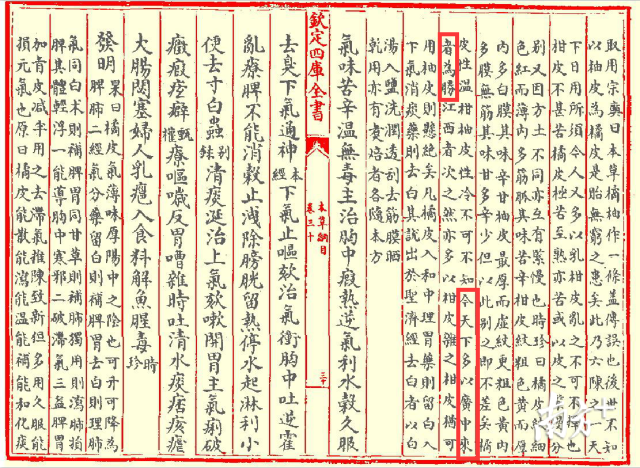 取用宗奭曰本草橘柚作一條蓋傳誤也後世不知
以柚皮為橘皮是貽無窮之患矣此乃六陳之一天
下日用所須今人又多以乳柑皮亂之不可不擇也
柑皮不甚苦橘皮極苦至熟亦苦或以皮之緊慢分
别又因方土不同亦互有緊慢也時珍曰橘皮紋細
色紅而薄內多筋脈其味苦辛柑皮紋粗色黃而厚
內多白膜其味辛甘柚皮最厚而虛紋更粗色黃內
多膜無筋其味甘多辛少但以此别之即不差矣橘
皮性溫柑柚皮性冷不可不知今天下多以廣中來
者為勝江西者次之然亦多以柑皮雜之柑皮猶可
用柚皮則懸絕矣凡橘皮入和中理胃藥則留白入
下氣消痰藥則去白其說出於聖濟經去白者以白
湯入鹽洗潤透刮去筋膜晒
乾用亦有煮焙者各隨本方
欽定四庫全書
本草綱目
卷三十
氣味苦辛溫無毒主治胸中瘕熱逆氣利水穀久服
去臭下氣通神本經下氣止嘔欬治氣衝胸中吐逆霍
亂療脾不能消穀止洩除膀胱留熱停水起淋利小
便去寸白蟲别錄清痰涎治上氣欬嗽開胃主氣痢破
癥瘕痃癖甄權療嘔噦反胃嘈雜時吐清水痰痞痎瘧
大腸閟塞婦人乳癰入食料解魚腥毒時珍
發明杲曰橘皮氣薄味厚陽中之陰也可升可降為
脾肺二經氣分藥留白則補脾胃去白則理肺
氣同白朮則補脾胃同甘草則補肺獨用則瀉肺損
脾其體輕浮一能導胸中寒邪二破滯氣三益脾胃
加青皮減半用之去滯氣推陳致新但多用久服能
損元氣也原曰橘皮能散能瀉能溫能補能和化痰
南方+